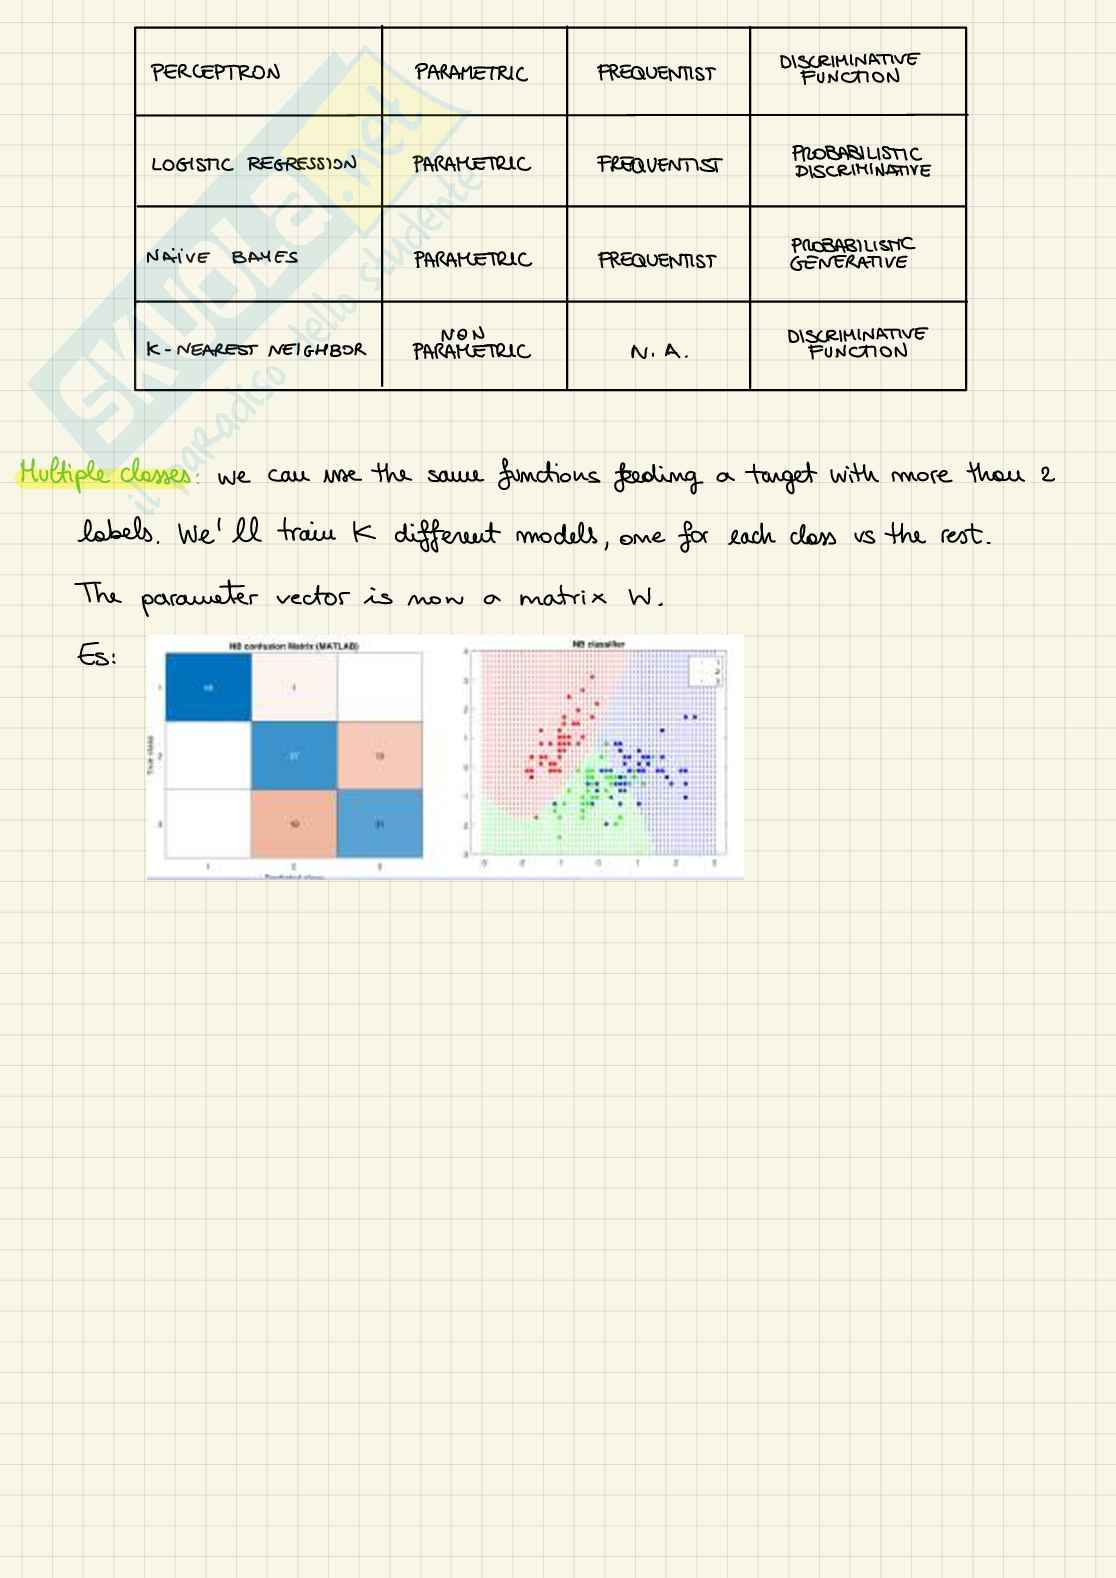 PERCEPTRON PARAMETRIC FREQUENTIST DISCRIMINATIVE FUNCTION
LOGISTIC REGRESSION PARAMETRIC FREQUENTIST PROBABILISTIC DISCRIMINATIVE
NAÏVE BAYES PARAMETRIC FREQUENTIST PROBABILISTIC GENERATIVE
K-NEAREST NEIGHBOR NON PARAMETRIC N.A. DISCRIMINATIVE FUNCTION
SKUOLA.net
il paradiso dello studente
Multiple classes: we can use the same functions feeding a target with more than 2
labels. We'll train K different models, one for each class vs the rest.
The parameter vector is now a matrix W.
Es:
NB confusion Matrix (MATLAB)
True class
1
2
3
1 2 3
Predicted class
NB classifier